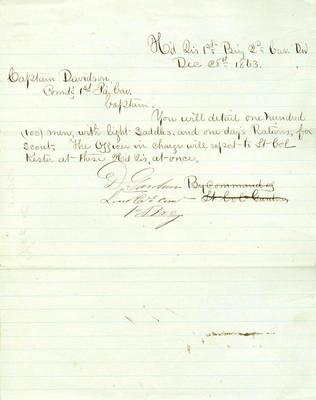 Hd Qrs 1st Brig 2d Cav. Div
Dec 28th 1863.
Captain Davidson,
Comd'g 1st Pa Cav.
Captain.
You will detail one hundred
(100) men, with light Saddles, and one days Rations, for
Scout. The Officer in charge will report to Lt-Col
Kester at these Hd Qrs, at once.
By Command of
Lt Col Gardner
Lieut Col Com
1st Brig